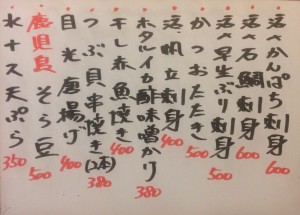 活〆かんぱち刺身 600
活〆石鯛刺身 600
活〆早生ぶり刺身 500
かつおたたき 500
活帆立刺身 400
ホタルイカ酢味噌かけ 380
干し赤魚焼き 400
つぶ貝串焼き(2本) 380
目光唐揚げ 400
鹿児島そら豆 500
水ナス天ぷら 350